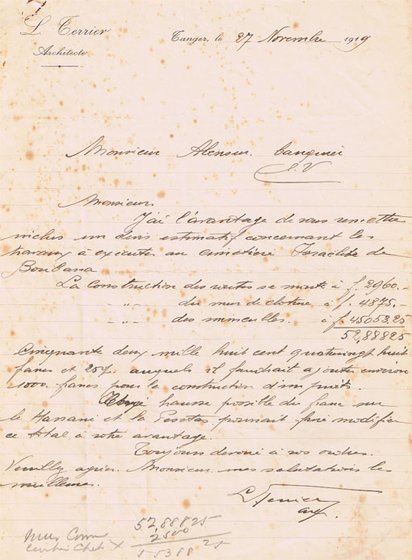 L. Terrier
Architecte
Tanger, le 27 Novembre 1919
Monsieur
E.V.
Monsieur
J'ai l'avantage de vous remettre
inclus un devis estimatif concernant les
travaux à exécuter au cimetière Israelite de
Boubana
La construction des routes se monte à f. 3060.-
" du mur de cloture à f. 4875.-
" des immeubles. à f 45053,25
52,888 25
Cinquante deux mille huit cent quatrevingt huit
francs et 25% auquels il faudrait ajouter environ
1000. francs pour la construction d'un puits.
hausse possible du franc sur
le Hassani et la Peseta pourrait faire modifier
ce total à votre avantage.
Toujours dévoué à vos ordres.
Veuillez agréer Monsieur mes salutations les
meilleures.
L. Terrier
arch.
52,888 25
2500